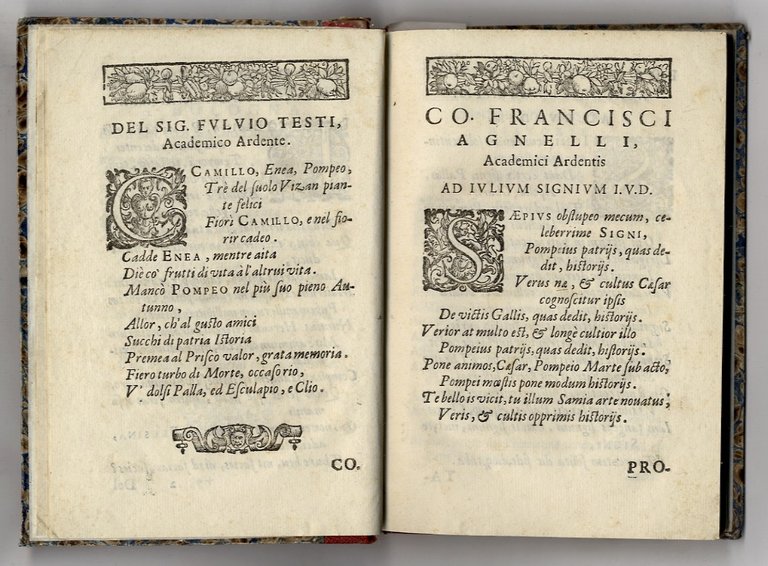 DEL SIG. FVLVIO TESTI,
Academico Ardente.
CAMILLO, Enea, Pompeo,
Trè del suolo Vizan pian-
te felici
Fiorì CAMILLO, e nel fio-
rir cadeo.
Cadde ENEA, mentre aita
Diè co' frutti di vita à l'altrui vita.
Mancò POMPEO nel più suo pieno Au-
tunno,
Allor, ch'al gusto amici
Succhi di patria Istoria
Premea al Prisco valor, grata memoria.
Fiero turbo di Morte, occaso rio,
V' dolsi Palla, ed Esculapio, e Clio.
CO.
CO. FRANCISCI
AGNELLI,
Academici Ardentis
AD IVLIVM SIGNIVM I.V.D.
SÆPIVS obstupeo mecum, ce-
leberrime SIGNI,
Pompeius patrijs, quas de-
dit, historijs.
Verus næ, & cultus Cæsar
cognoscitur ipsis
De victis Gallis, quas dedit, historijs.
Verior at multo est, & longè cultior illo
Pompeius patrijs, quas dedit, historijs.
Pone animos, Cæsar, Pompeio Marte sub acto,
Pompei mœstis pone modum historijs.
Te bello is vicit, tu illum Samia arte novatus;
Veris, & cultis opprimis historijs.
PRO-